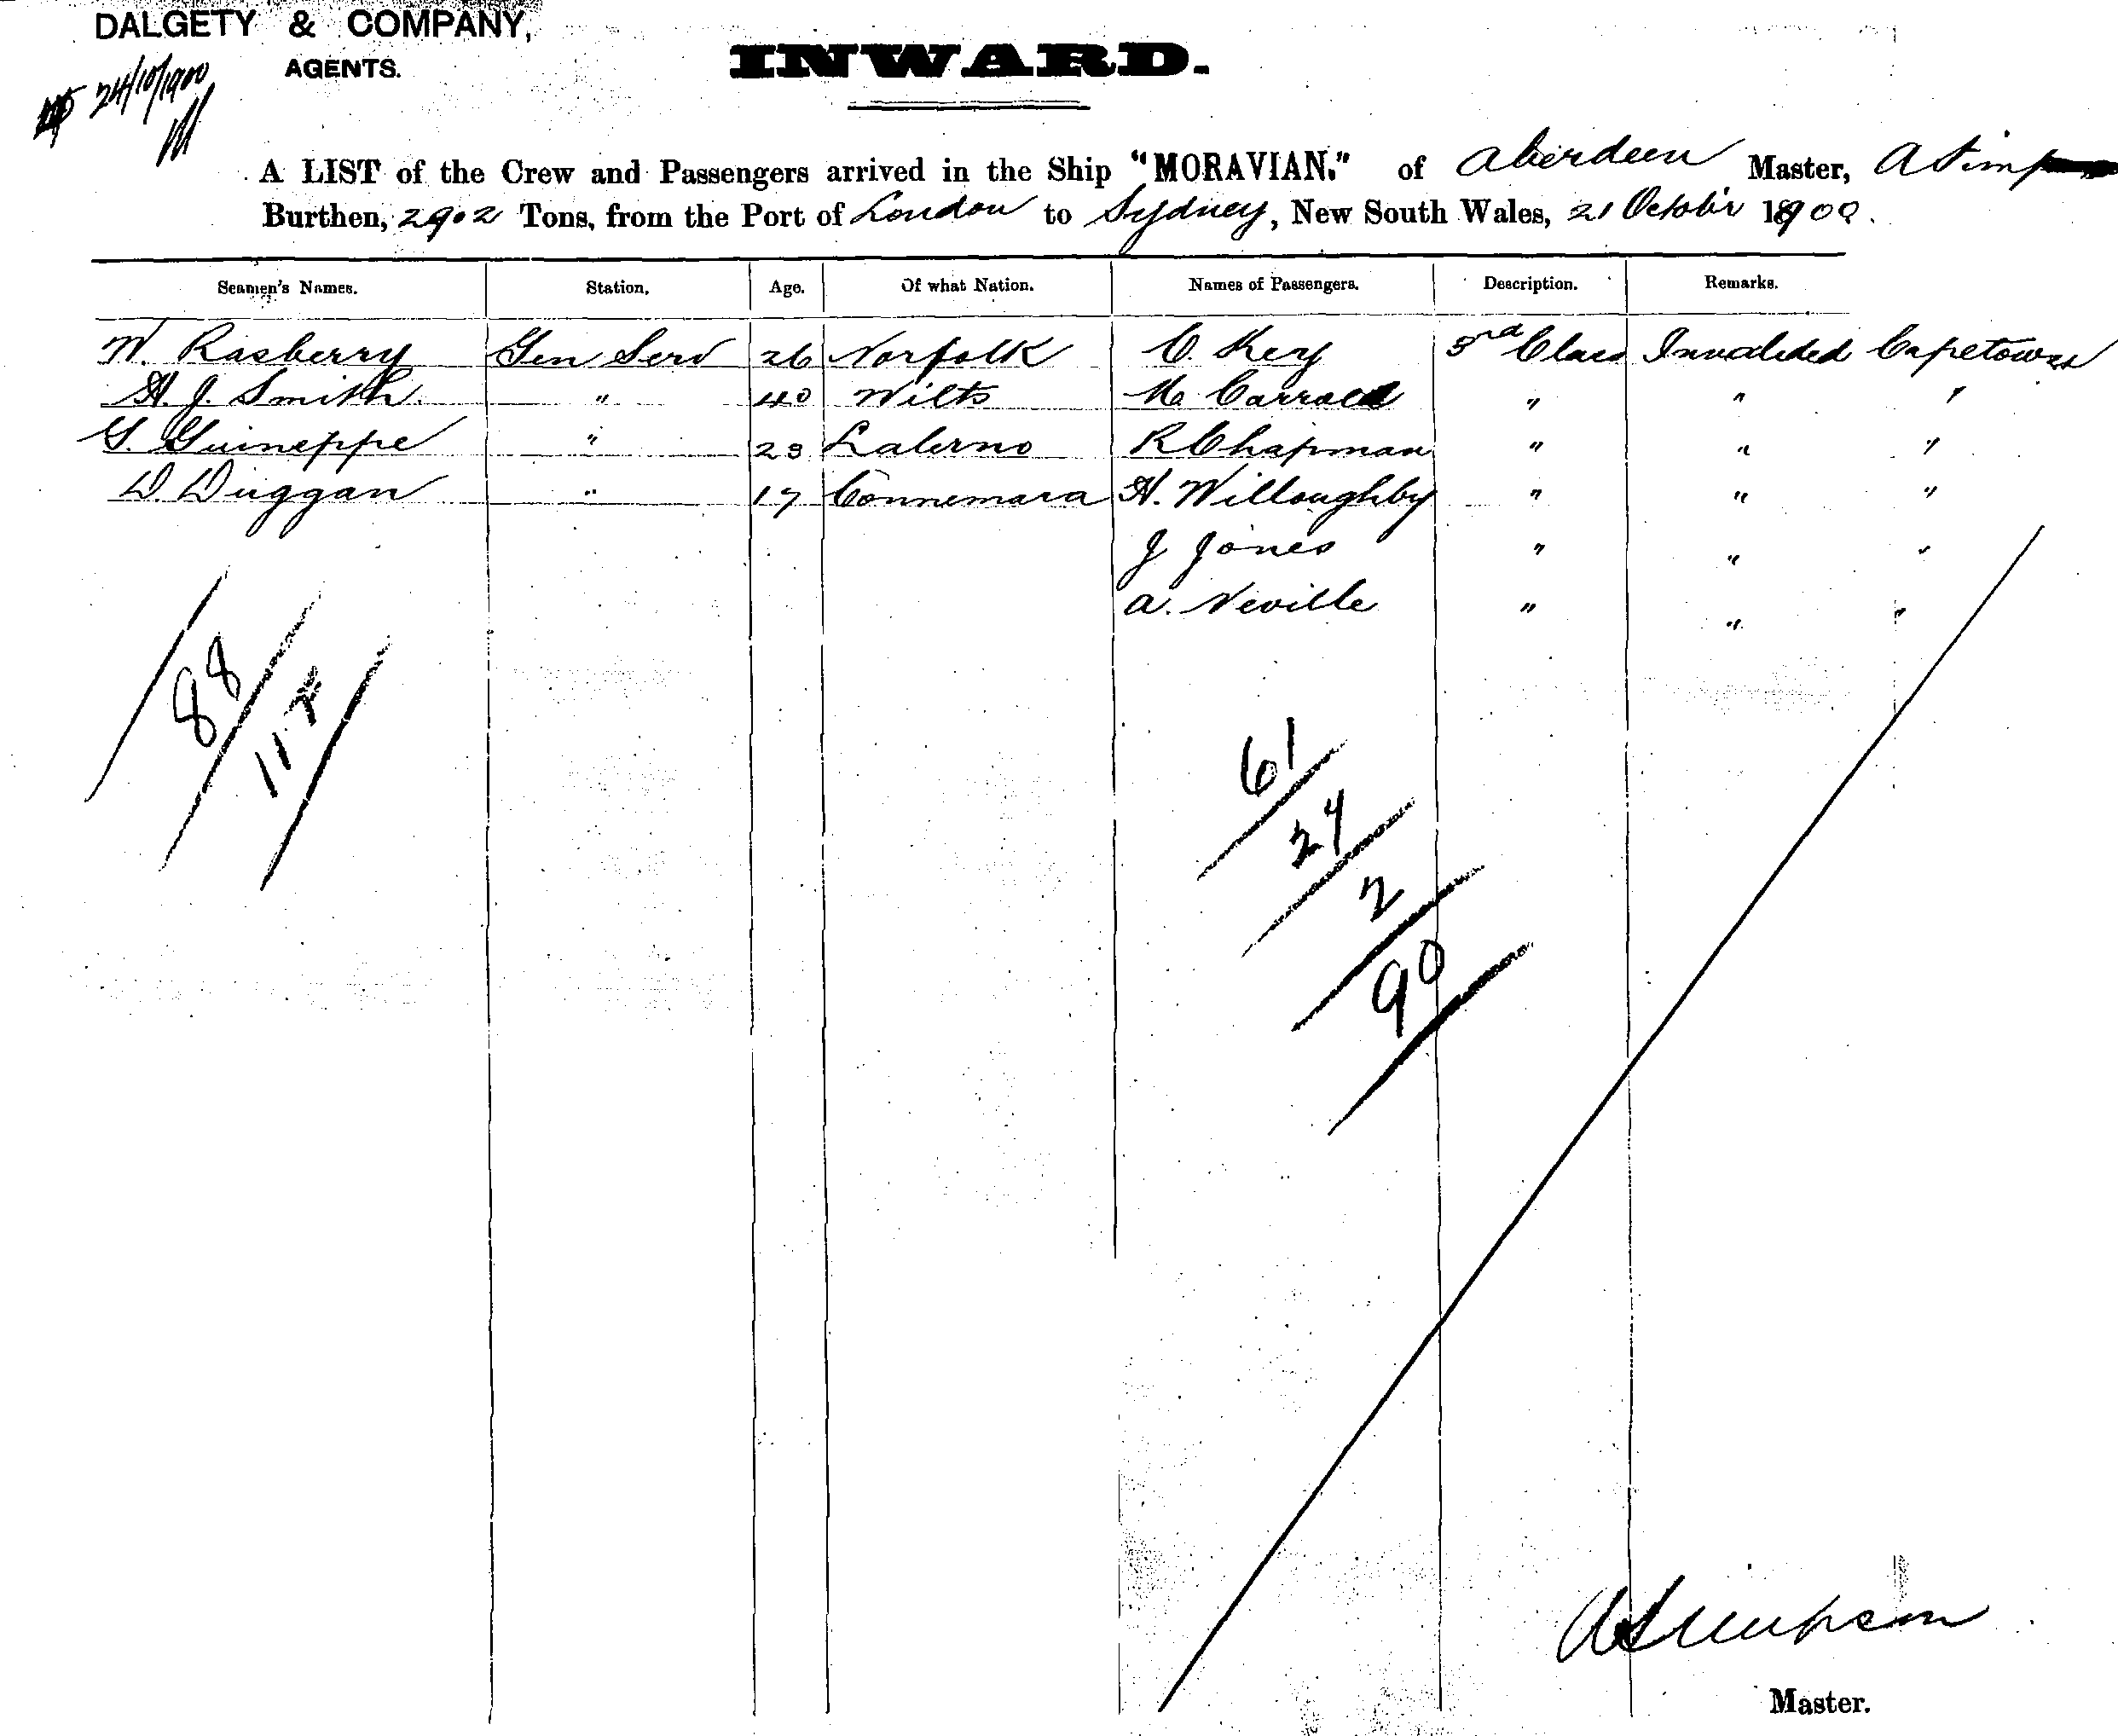 DALGETY & COMPANY,
AGENTS.
24/10/1900
INWARD.
A LIST of the Crew and Passengers arrived in the Ship "MORAVIAN." of Aberdeen Master, A Simp
Burthen, 2902 Tons, from the Port of London to Sydney, New South Wales, 21 October 1900.
Seamen's Names. Station. Age. Of what Nation. Names of Passengers. Description. Remarks.
W. Rasberry Gen Serv 26 Norfolk C. Key 3rd Class Invalided Capetown
H. J. Smith " 40 Wilts M. Carroll " " "
G. Guineppe " 23 Lalerno R Chapman " " "
D. Duggan " 17 Connemara H. Willoughby " " "
J Jones " " "
A. Neville " " "
88
112
61
24
2
90
A Simpson
Master.